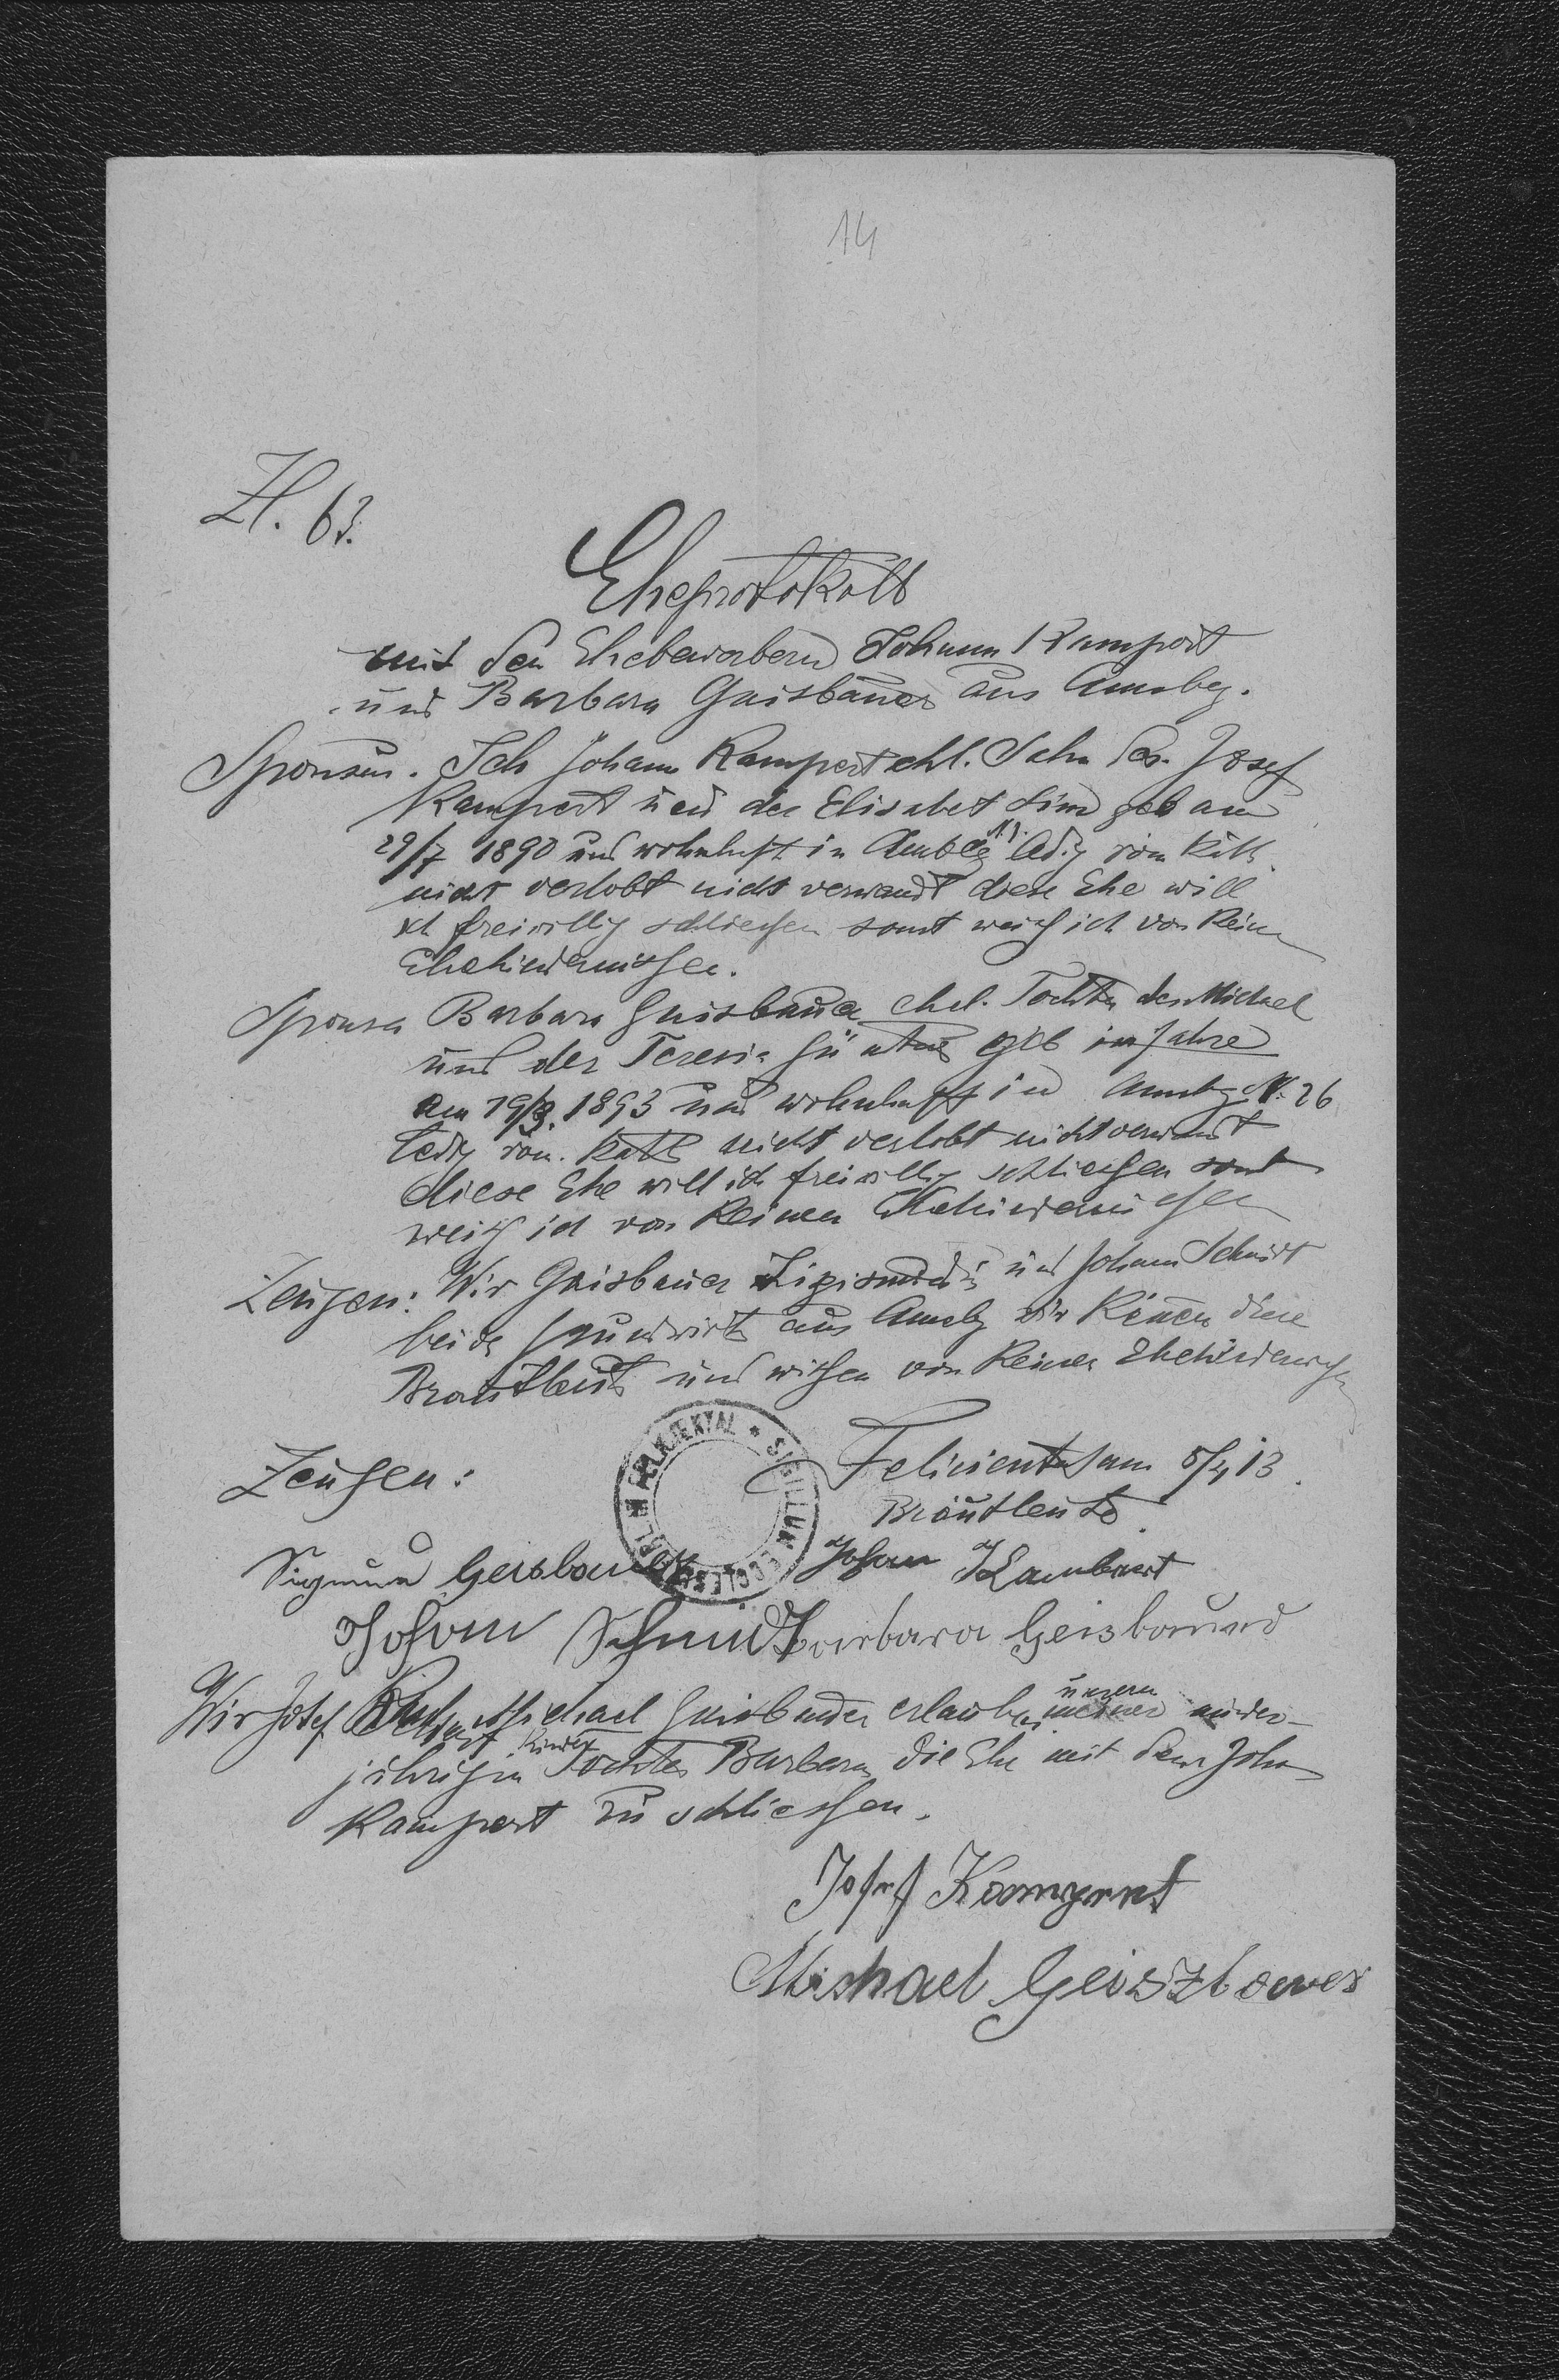 14
Zl. 63.
Eheprotokoll
mit den Ehebewerbern Johann Kampert
und Barbara Gaisbauer aus Amsbg.
Sponsus. Ich Johann Kampert ehl. Sohn des Josef
Kampert und der Elisabet geb am
29/7 1890 und wohnhaft in ledig röm Kath
nicht verlobt nicht verwandt diese Ehe will
ich freiwillig schliessen sonst weiss ich von keinen
Ehehindernissen.
Sponsa Barbara Gaisbauer ehel. Tochter des Michael
und der Teresia geb im Jahre
am 19/3. 1893 und wohnhaft in N. 26
ledig röm. Kath nicht verlobt nicht verwandt
diese Ehe will ich freiwillig schliessen sonst
weiss ich von keinen Ehehindernissen
Zeugen: Wir Gaisbauer und Johann Schmidt
beide Grundwirte aus wir kennen diese
Brautleute und wissen von keinen Ehehindernissen
SIGILLUM ECCLESIAE
Zeugen:
Felicienthal am 5/4 13.
Brautleute
Geisbauer Johan Kambert
Johann Schmidt Barbara Geisbauer
Wir Josef Michael Gaisbauer erlauben unsern minder-
jährigen Kinder Tochter Barbara die Ehe mit dem Johan
Kampert zu schliessen.
Josef Kampert
Michael Geiszbauer